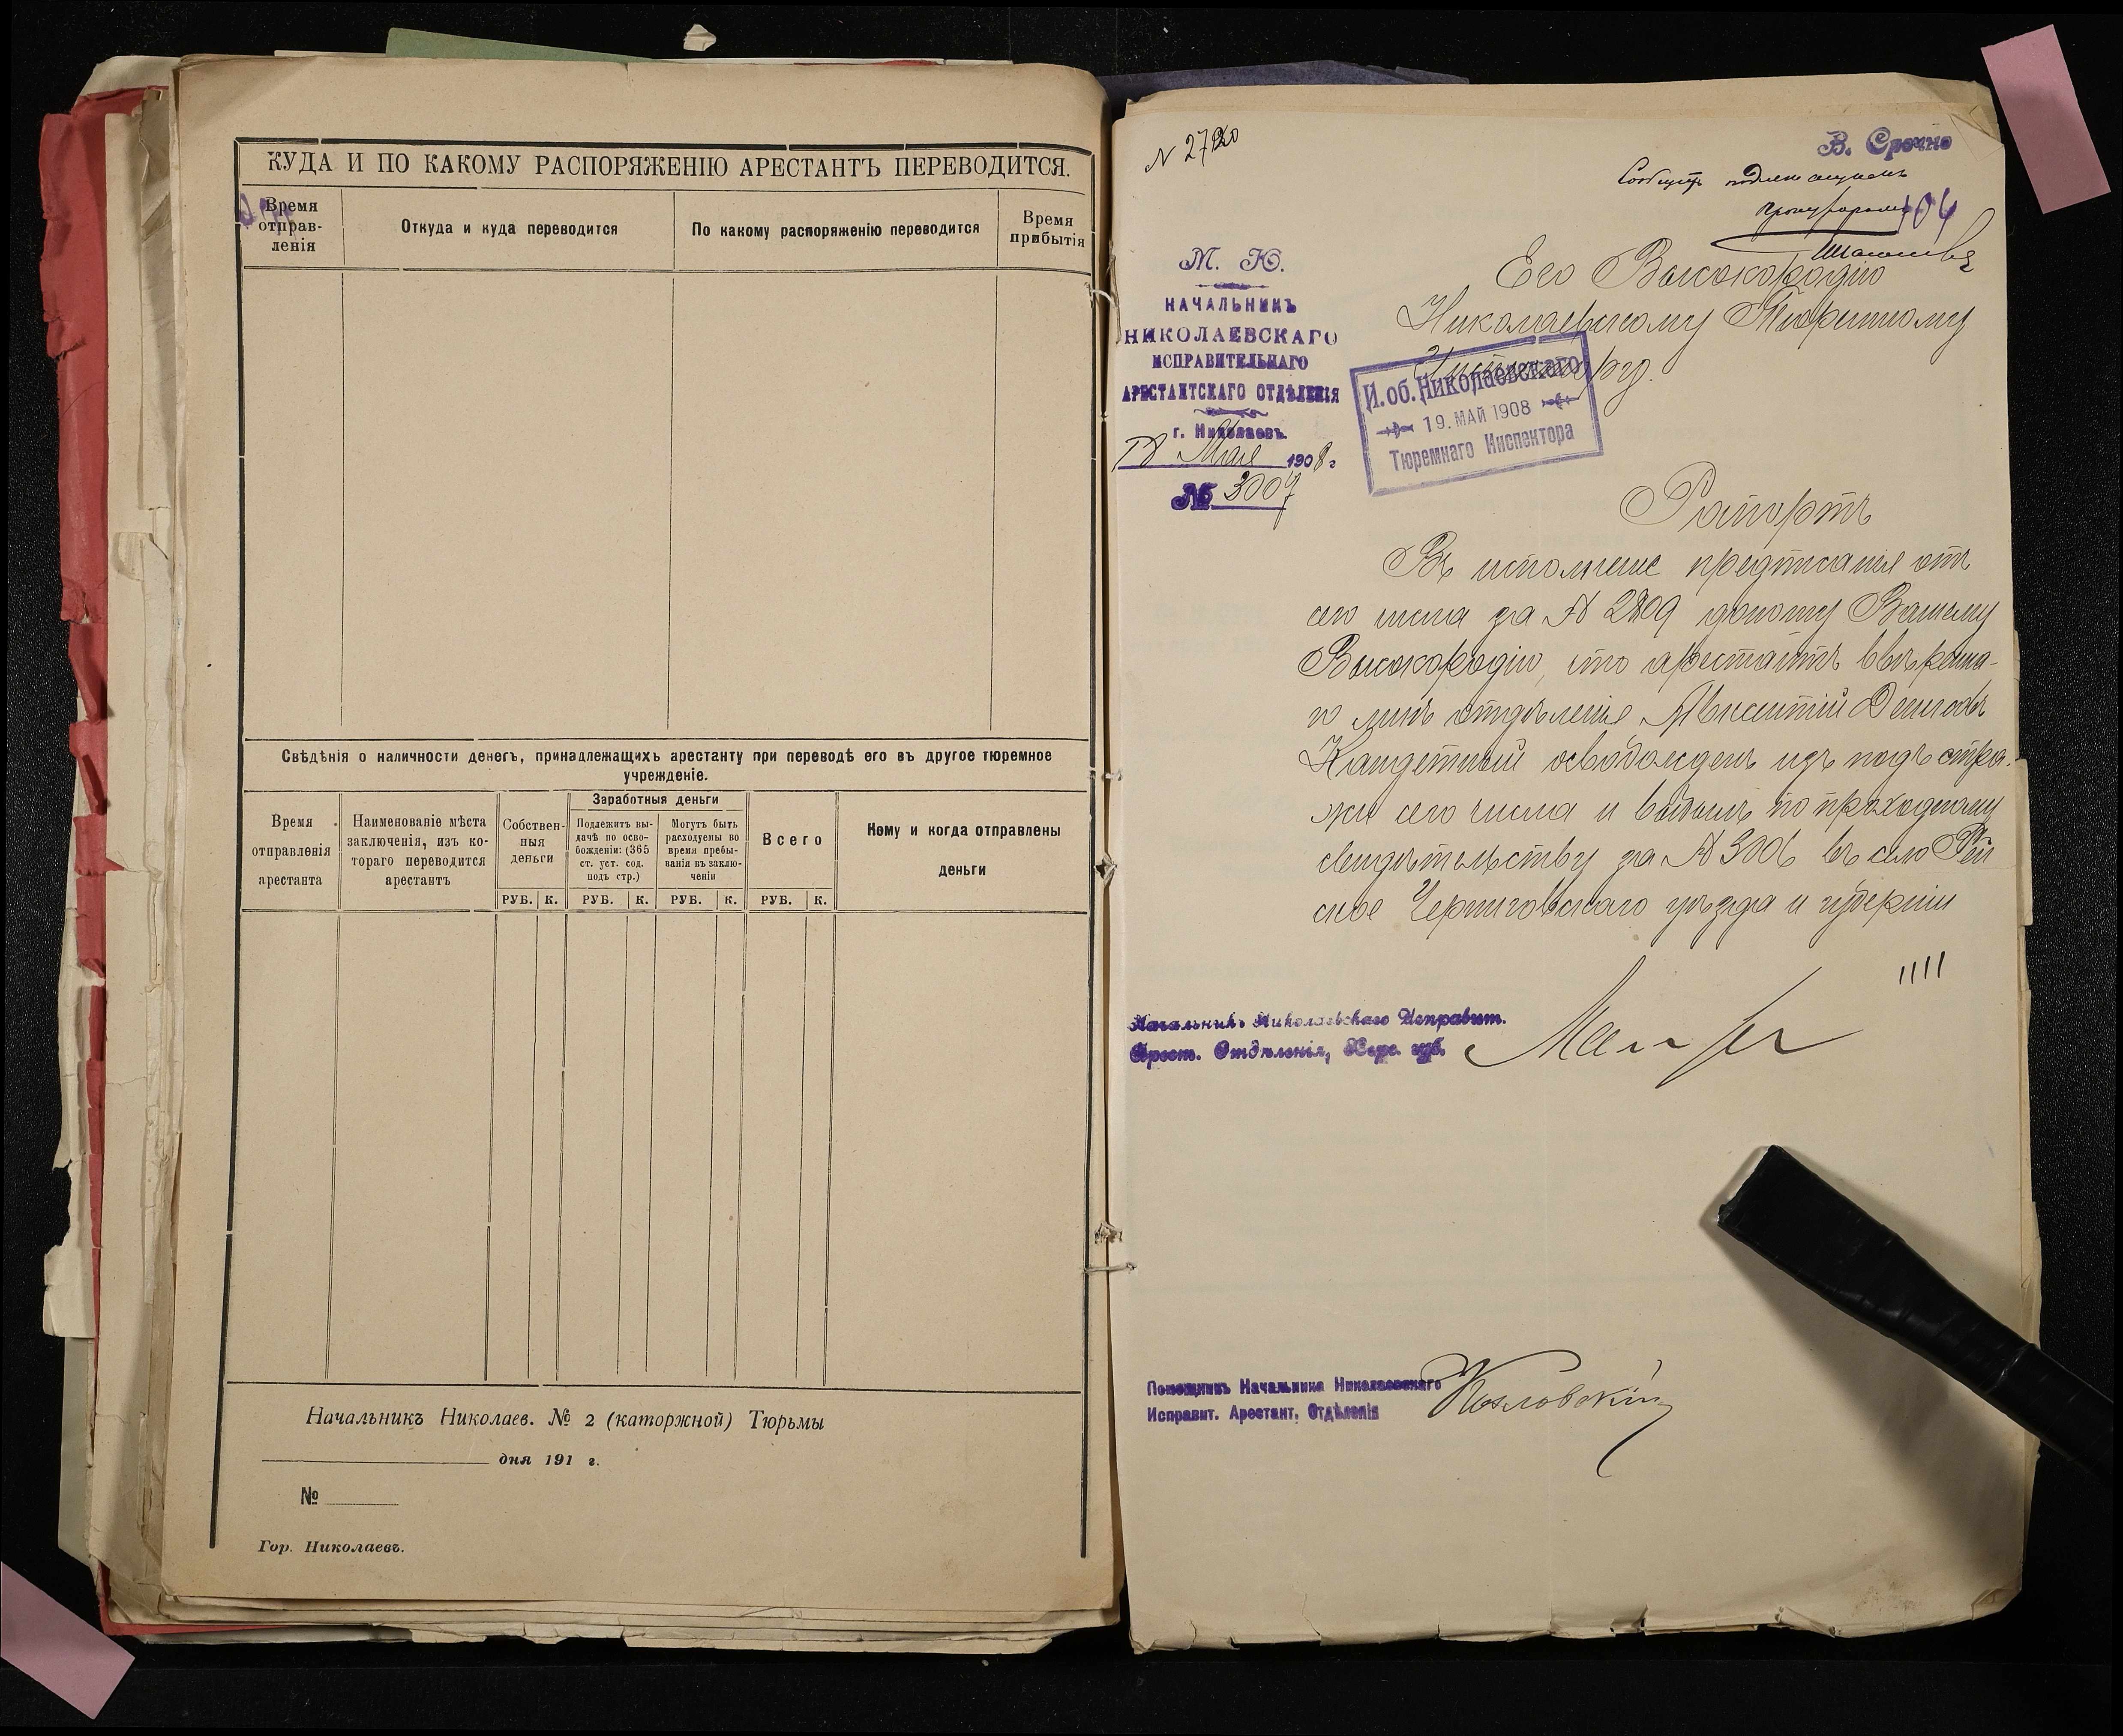 КУДА И ПО КАКОМУ РАСПОРЯЖЕНІЮ АРЕСТАНТЪ ПЕРЕВОДИТСЯ.
Время отправ-ленія
Откуда и куда переводится
По какому распоряженію переводится
Время прибытія
Свѣдѣнія о наличности денегъ, принадлежащихъ арестанту при переводѣ его въ другое тюремное
учрежденіе.
Время отправленія арестанта
Наименованіе мѣста заключенія, изъ ко-тораго переводится арестантъ
Собствен-ныя деньги
Заработныя деньги
Подлежитъ вы-дачѣ по осво-божденіи: (365 ст. уст. сод. подъ стр.)
Могутъ быть расходуемы во время пребы-ванія въ заклю-ченіи
Всего
Кому и когда отправлены деньги
РУБ. К. РУБ. К. РУБ. К. РУБ. К.
Начальникъ Николаев. № 2 (каторжной) Тюрьмы
дня 191 г.
№
Гор. Николаевъ.
В. Срочно
104
М. Ю.
НАЧАЛЬНИКЪ
НИКОЛАЕВСКАГО
ИСПРАВИТЕЛЬНАГО
АРЕСТАНТСКАГО ОТДѢЛЕНІЯ
г. Николаевъ.
18 Мая 1908 г
№ 3007
Его Высокородію
Николаевскому Тюремному
Инспектору.
И. об. Николаевскаго
19. МАЙ 1908
Тюремнаго Инспектора
Рапортъ
Въ исполненіе предписанія отъ
сего числа за N 2809 доношу Вашему
Высокородію, что арестантъ ввѣренна-
го мнѣ отдѣленія Авксентій Демидовъ
освобожденъ изъ подъ стра-
жи сего числа и выбылъ по проходному
свидѣтельству за N 3006 въ село
ское Черниговскаго уѣзда и губерніи
Начальникъ Николаевскаго Исправит.
Арест. Отдѣленія, Херс. губ.
Помощникъ Начальника Николаевскаго
Исправит. Арестант. Отдѣленія
Козловскій